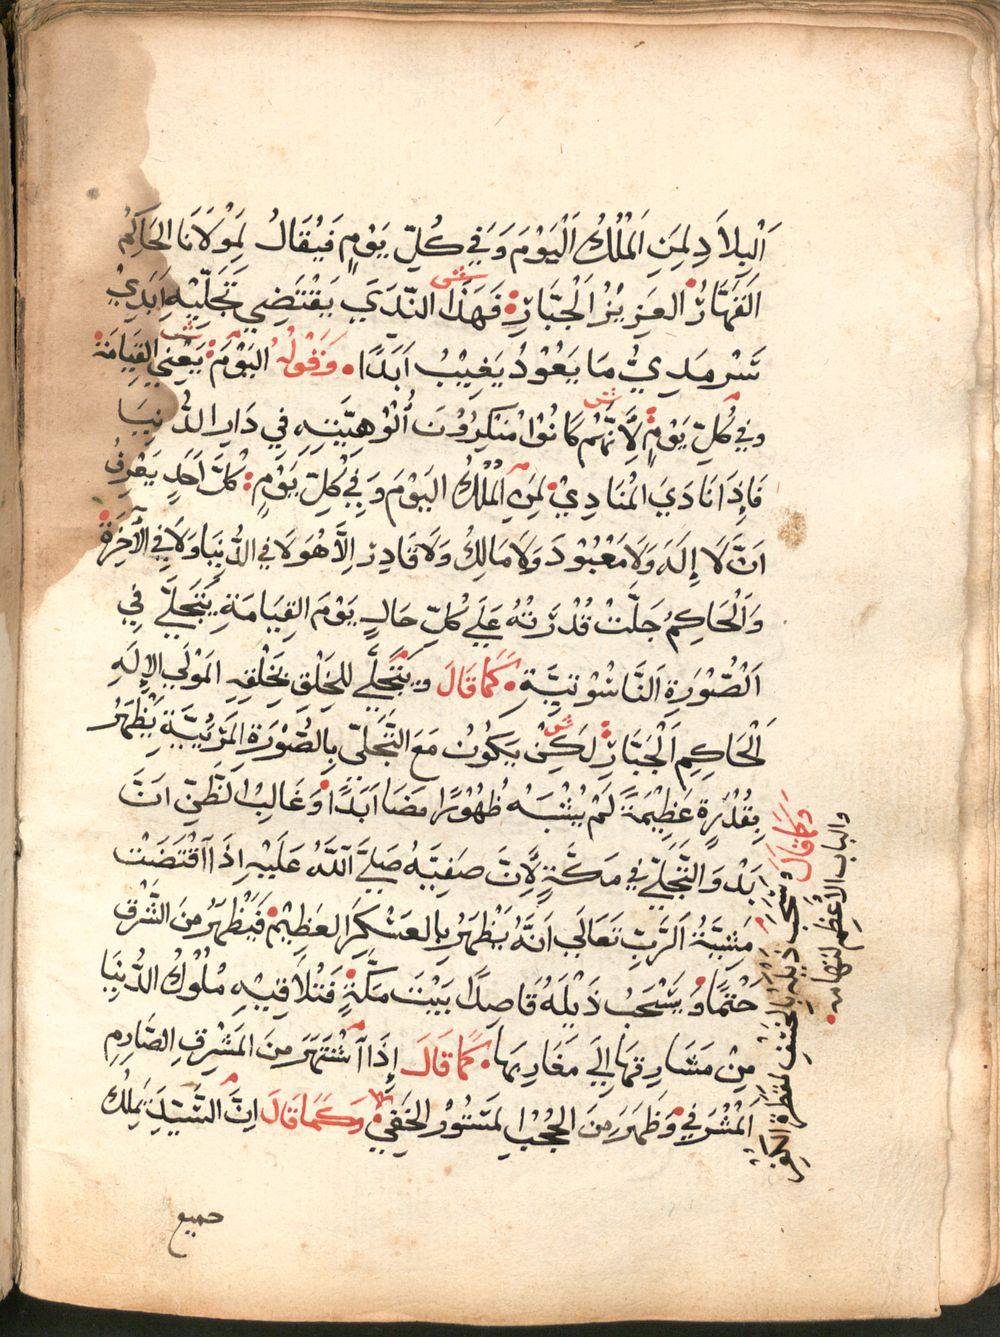 اَلْبِلاَدِ لِمَنِ الْمُلْكُ اَلْيَوْمَ وَفِي كُلِّ يَوْمٍ فَيُقَالُ لِمَوْلَانَا الحَاكِم
القَهَّارُ العَزِيزُ الْجَبَّارِ ش فَهَذَا النِّدَي يَقْتَضِي تَجَلِّيهِ اَبَدِيْ
سَرْمَدِيْ مَا يَعُوْدُ يَغِيْبُ اَبَدًا وَقَوْلُهُ اليَوْمَ ش يَعْنِي القِيَامَة
وفي كُلِّ يَوْمٍ ش لِاَنَّهُم كَانُوْا مُنْكِرُوْنَ اُلُوْهِيَّتِهِ فِي دَارِ الدُّنِيَا
فَاِذَا نَادَيَ الْمُنَادِيْ لِمَنِ الْمُلْكُ اليَوْمَ وَفِي كُلِّ يَوْمٍ كُلّ اَحَدٍ يَعْرِفُ
اَنَّ لَا إِلَهَ وَلَا مَعْبُوْدَ وَلَا مَالِكُ وَلَا قَادِرْ اِلَّا هُوَ لَا فِي الدُّنِيَا وَلَا فِي الْآخِرَة
وَالْحَاكِمُ جَلَّتْ قُدْرَتُهُ عَلَي كُلِّ حَالٍ يَوْمَ القِيَامَةِ يَتَجَلَّي فِي
اَلصُّوْرَةِ النَّاسُوْتِيَّةِ كَمَا قَالَ وَيَتَجَلَّي لِلْخَلْقِ بِخَلْقِهِ المَوْلَي الإِلَهِ
اَلْحَاكِمِ اَلْجَبَّارِ ش لَكِنْ يَكُوْنُ مَعَ التَّجَلِّي بِالصُّوْرَةِ المَرْئِيَّةِ يَظْهَرُ
بِقُدْرَةٍ عَظِيْمَةً لَمْ يُشْبَهْ ظُهُوْرًا مَضَا اَبَدًا وَغَالِبُ الظَّنِّ اَنَّ
بَدْو التَّجَلِّي في مَكَّةٍ لِاَنَّ صَفِيّهُ صَلَّيَ اَللَّهُ عَلَيْهِ اِذَا اقْتَضَتْ
مَشِيَّةُ اَلرَّبِّ تَعَالَي اَنَّهُ يَظْهَرُ بِالعَسْكَرِ العَظِيْمْ فَيَظْهَرُ مِنَ الشَّرْقِ
حَتْمًا وَيَسْحَبُ ذَيْلَهُ قَاصِدًا بَيْتَ مَكَّةٍ فَتْلَاقِيْهِ مُلُوْكُ الدُّنِيَا
مِنْ مَشَارِقِهَا اِلَي مَغَارِبِهَا كَمَا قَالَ إِذَا اَشْتَهَرَ مِنَ المَشْرِقِ الصَّارِمِ
اَلْمَشْرَفِي وَظَهَرَ مِنَ الحُجُبِ المَسْتُوْرْ الخَفِيْ وَكَمَا قَالَ اِنَّ السَّيِّدَ يَمْلِكُ
جميع
وَكَمَا قَالَ
والباب الاَعْظَمِ لتهامه